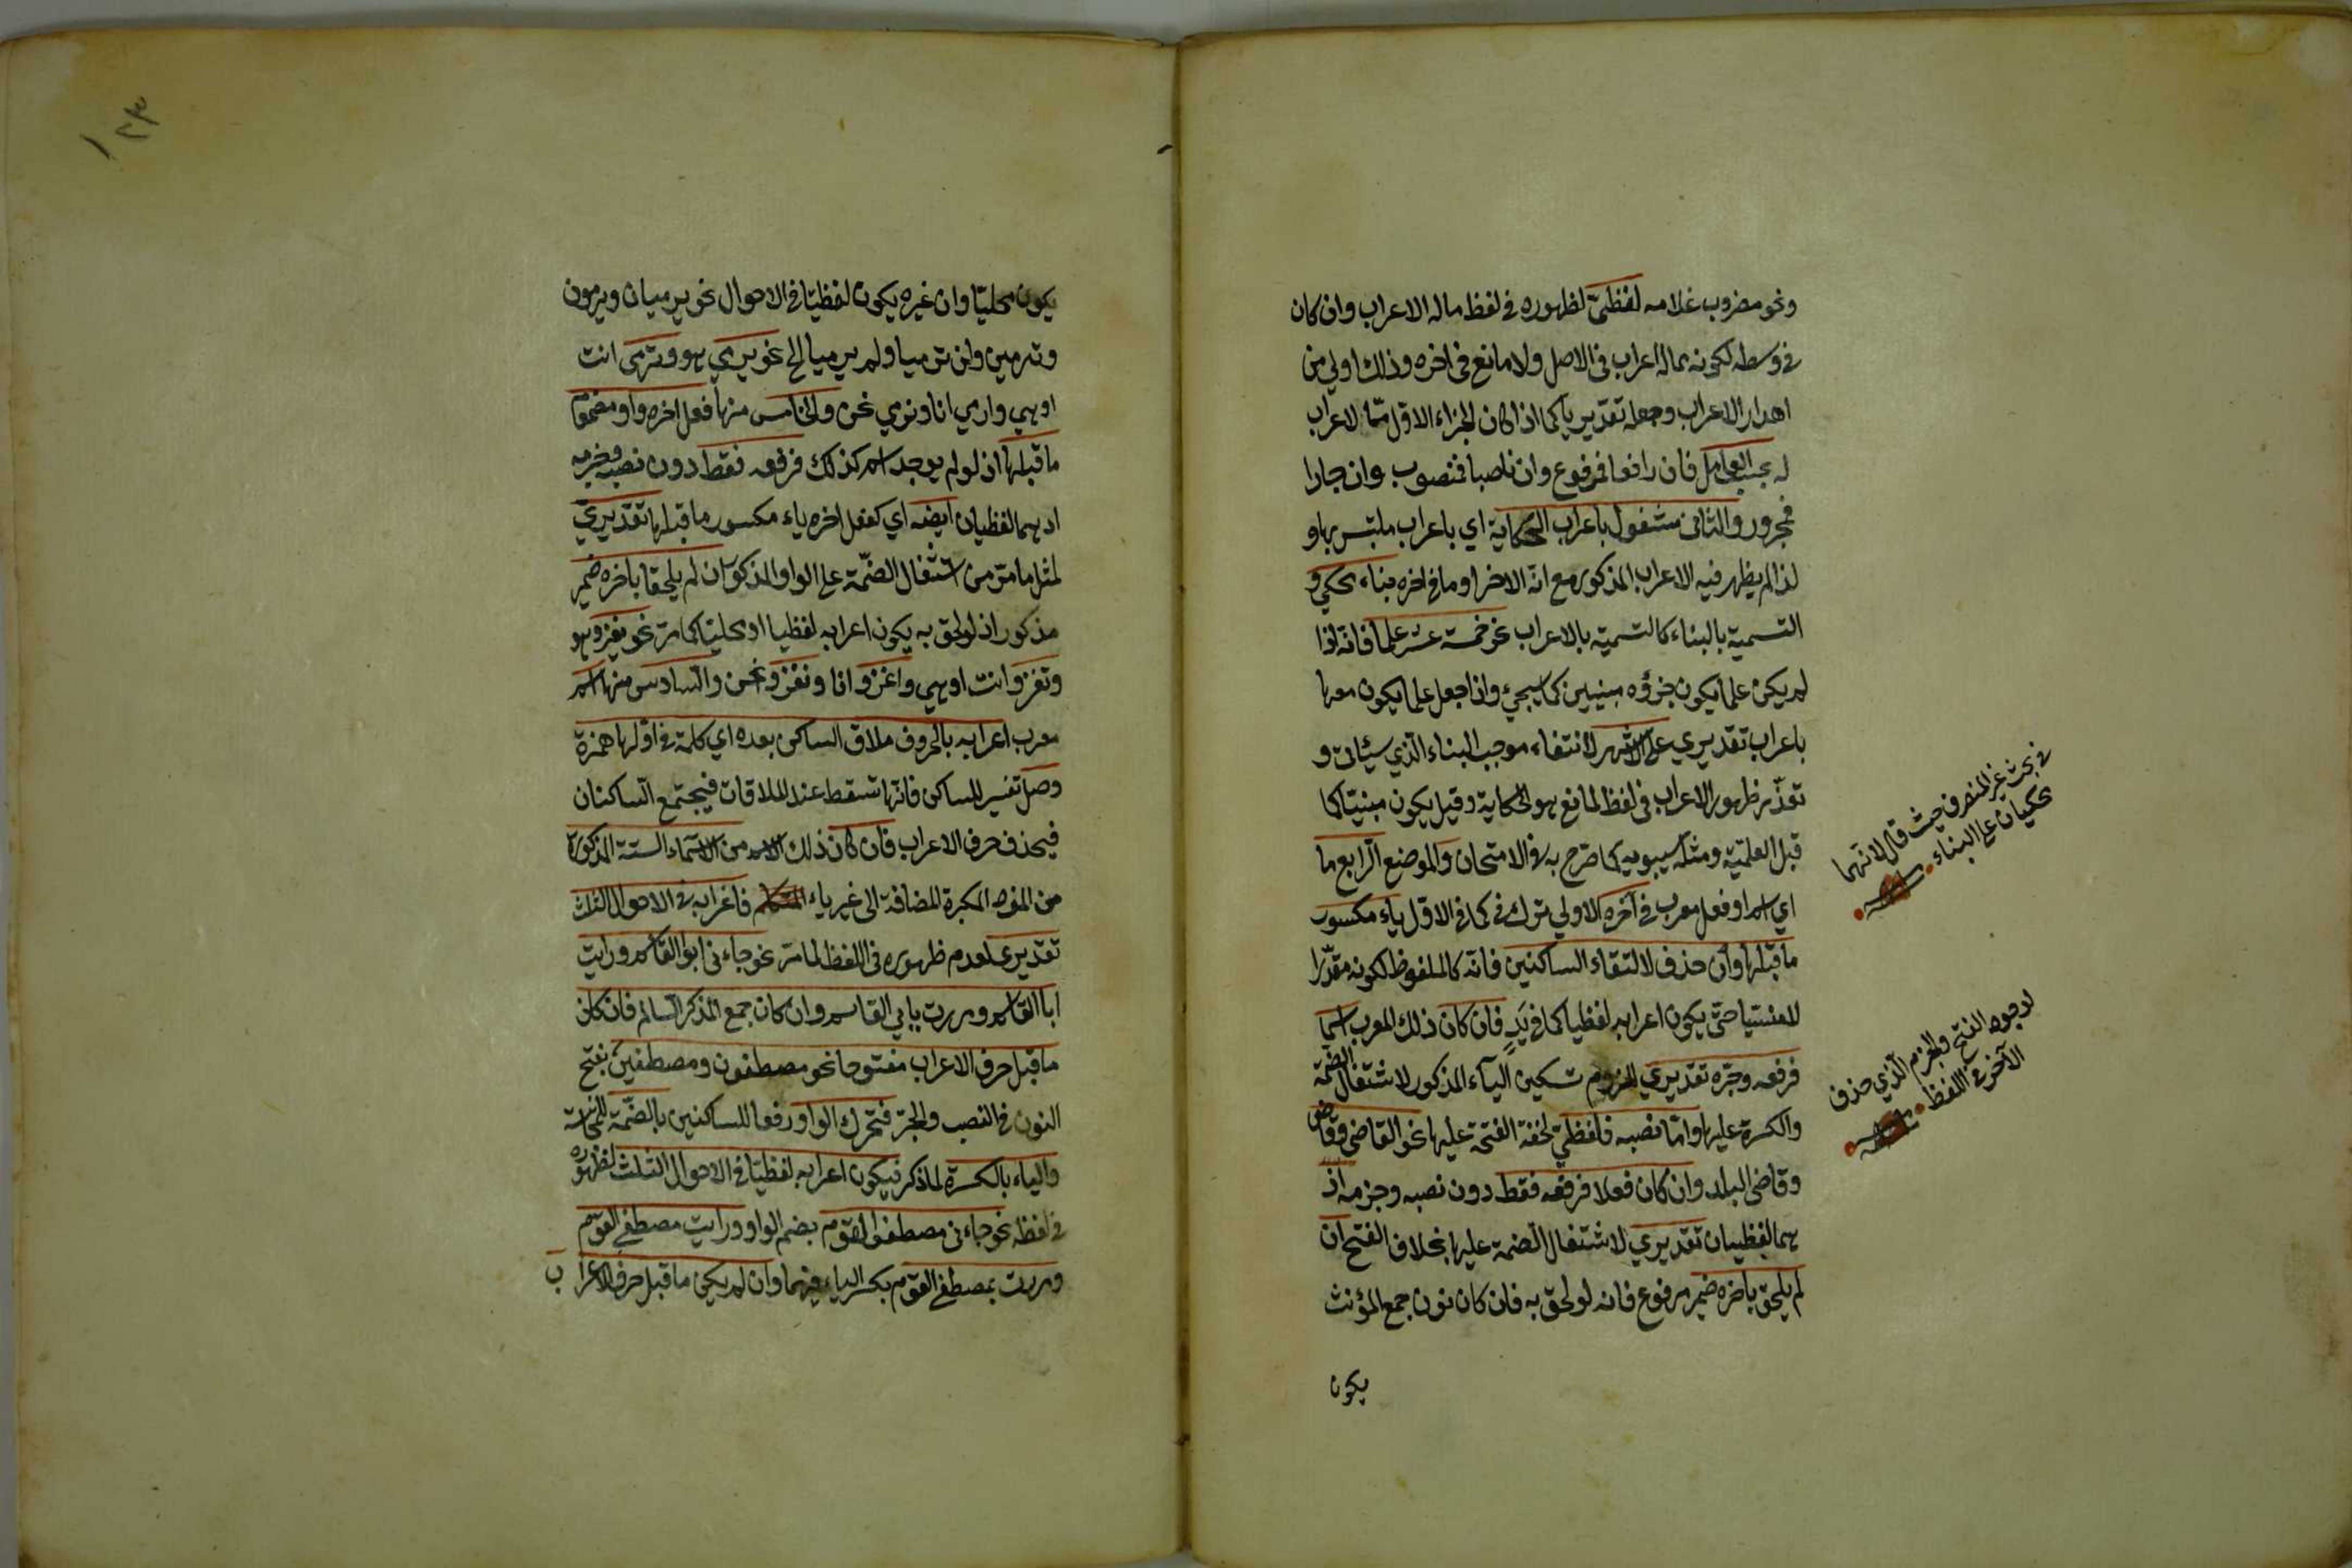 ونحو مضروب غلامه لفظيّ لظهوره في لفظ ماله الاعراب وان كان
في وسطه لكونه بماله اعراب في الاصل ولا مانع في اخره وذلك اولى من
اهدار الاعراب وجعله تقديريا كما اذا كان الجزاء الاول ممّا لا اعراب
له بحسب العوامل فان رافعا فمرفوع وان ناصبا فمنصوب وان جارا
فمجرور والثاني مشغول باعراب الحكاية اي باعراب ملتبس بها و
لذا لم يظهر فيه الاعراب المذكور مع انه الاخر او ما في اخره بناء محكي و
التسمية بالبناء كالتسمية بالاعراب نحو خمسة عشر علما فانه اذا
لم يكن علما يكون جزؤه مبنيين كما سيجيء واذا جعل علما يكون معربا
باعراب تقديري على الاشهر لانتفاء موجب البناء الذي سيئاتي و
تعذّر ظهور الاعراب في لفظ لمانع هو الحكاية وقيل يكون مبنيّا كما
قبل العلميّة ومثله سيبويه كما صرّح به في الامتحان والموضع الرابع ما
اي اسم او فعل معرب في آخره الاولى ترك في كما في الاول ياء مكسور
ما قبلها وان حذف لالتقاء الساكنين فانه كالملفوظ لكونه مقدّرا
لا منسيا حتى يكون اعرابه لفظيا كما في يدٍ فان كان ذلك المعرب اسما
فرفعه وجرّه تقديري للزوم تسكين الياء المذكور لاستثقال الضمّة
والكسرة عليها وامّا نصبه فلفظيّ لخفة الفتحة عليها نحو القاضي وقاضٍ
وقاضي البلد وان كان فعلا فرفعه فقط دون نصبه وجزمه اذ
هما لفظيان تقديري لاستثقال الضمة عليها بخلاف الفتح ان
لم يلحق باخره ضمير مرفوع فانه لو لحق به فان كان نون جمع المؤنث
يكون
في بحث غير المنصرف حيث قال لانهما
محكيان على البناء
لوجود الفتح والجزم الذي حذف
الآخر في اللفظ
١٢٣
يكون محليّا وان غيره يكون لفظيّا في الاحوال نحو يرميان ويرمون
وترمين ولن ترميا ولم يرميا الخ نحو يرمي هو وترمي انت
او هي وارمي انا ونرمي نحن والخامس منها فعل اخره واو مضموم
ما قبلها اذ لو لم يوجد اسم كذلك فرفعه فقط دون نصبه وجزمه
اذ هما لفظيان ايضه اي كفعل اخره ياء مكسور ما قبلها تقديريّ
لمثل ما مرّ من استثقال الضمّة على الواو المذكور ان لم يلحقا باخره ضمير
مذكور اذ لو لحق به يكون اعرابه لفظيا او محليّا كما مرّ نحو يغزو هو
وتغزو انت او هي واغزو انا ونغزو نحن والسادس منها اسم
معرب اعرابه بالحروف ملاق الساكن بعده اي كلمة في اوّلها همزة
وصل تفسير للساكن فانّها تسقط عند الملاقات فيجتمع الساكنان
فيحذف حرف الاعراب فان كان ذلك الاسم من الاسماء الستة المذكورة
من المفرد المكبرة المضافة الى غير ياء المتكلم فاعرابه في الاحوال الثلث
تقديري لعدم ظهوره في اللفظ لما مرّ نحو جاءني ابو القاسم ورايت
ابا القاسم ومررت بابي القاسم وان كان جمع المذكر السالم فان كان
ما قبل حرف الاعراب مفتوحا نحو مصطفون ومصطفين بفتح
النون في النصب والجرّ فتحرك الواو رفعا للساكنين بالضمّة للمناسبة
والياء بالكسرة لما ذكر فيكون اعرابه لفظيّا في الاحوال الثلث لظهوره
في لفظه نحو جاءني مصطفوا القوم بضم الواو ورايت مصطفي القوم
ومررت بمصطفي القوم بكسر الياء فيهما وان لم يكن ما قبل حرف الاعراب